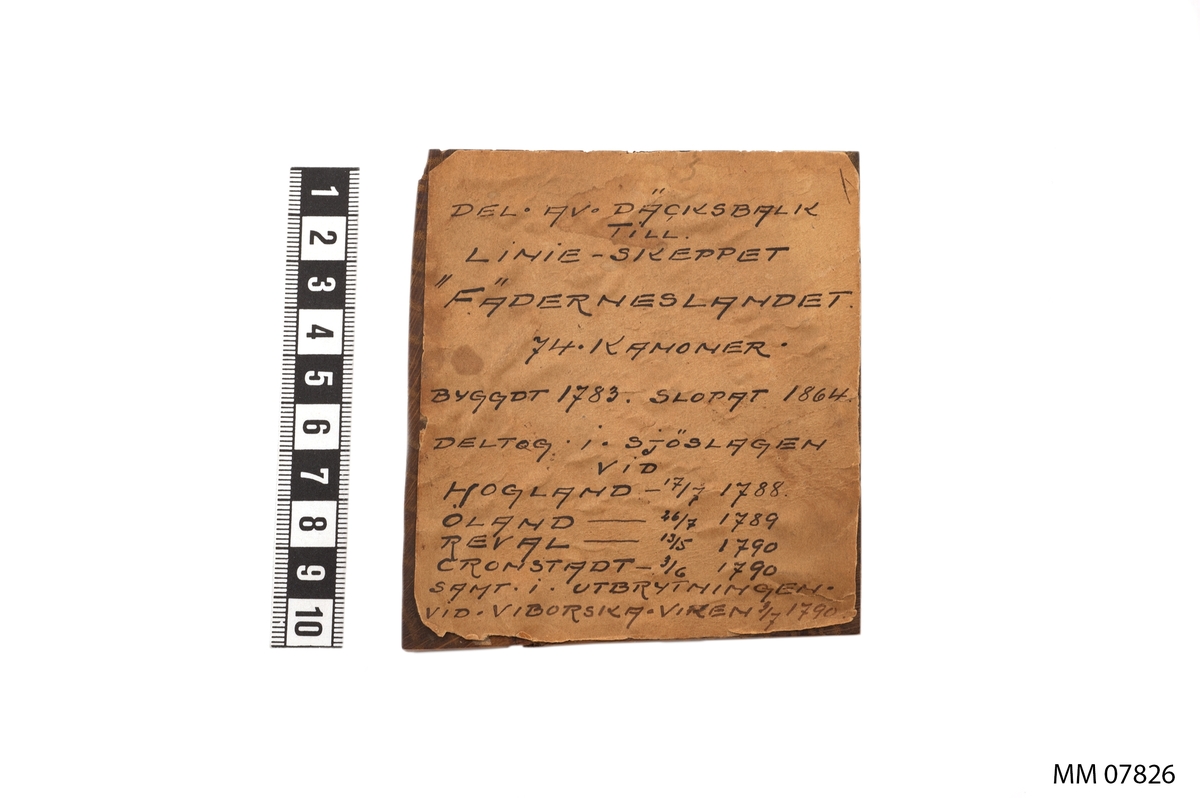 1
2
3
4
5
6
7
8
9
10
DEL · AV · DÄCKSBALK
TILL.
LINIE-SKEPPET
"FÄDERNESLANDET.
74 · KANONER ·
BYGGDT 1783. SLOPAT 1864.
DELTOG · I · SJÖSLAGEN
VID
HOGLAND - 17/7 1788.
ÖLAND — 26/7 1789
REVAL — 13/5 1790
CRONSTADT - 3/6 1790
SAMT · I · UTBRYTNINGEN ·
VID · VIBORSKA · VIKEN 3/7 1790
MM 07826